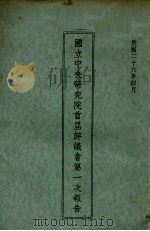 民國二十六年四月
國立中央研究院首屆評議會第一次報告